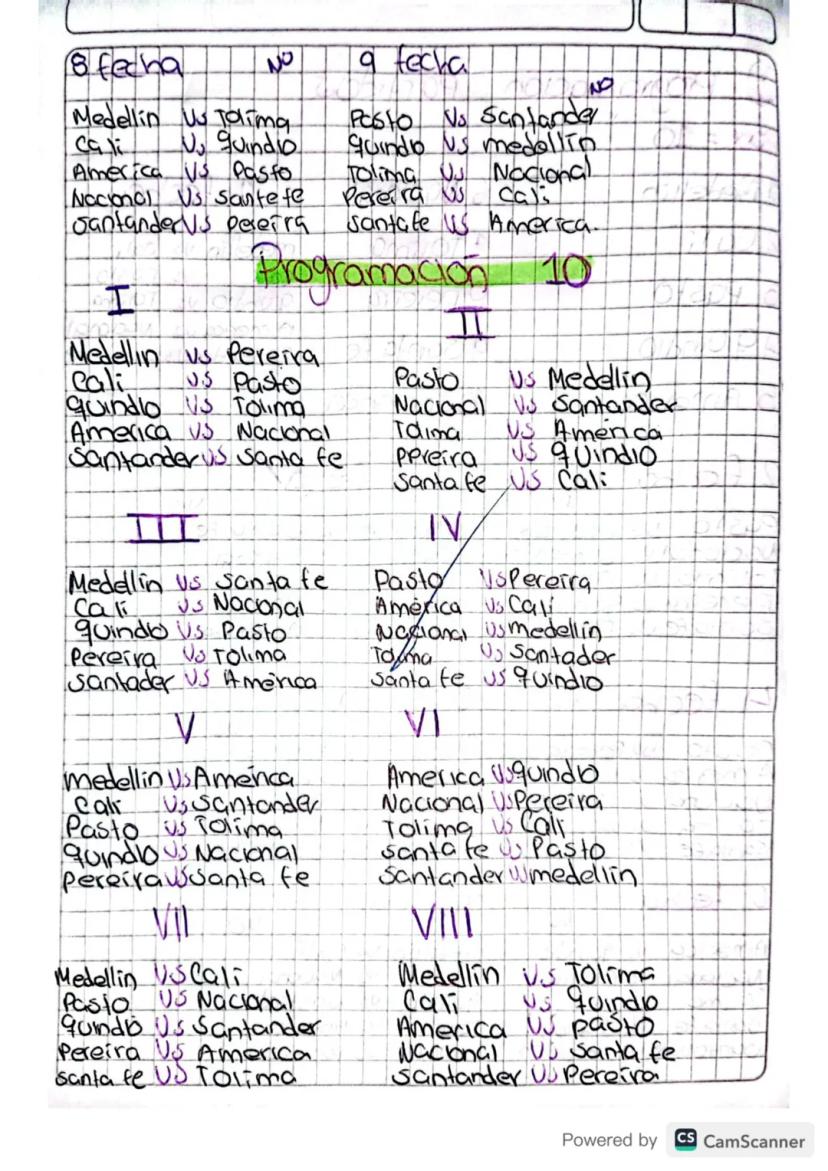 8 fecha NO
Medellin Vs Tolima
Cali Vs quindio
America Vs Pasto
Nacional Vs Santefe
Santander Vs pereira
9 fecha NO
Pasto Vs Santander
quindo Vs medellin
Tolima Vs Nacional
Pereira Vs Cali
Santafe Vs America.
Programación 10
I
Medellin Vs Pereira
Cali Vs Pasto
quindio Vs Tolima
America Vs Nacional
Santander Vs Santa fe
II
Pasto Vs Medellin
Nacional Vs Santander
Tolima Vs America
pereira Vs quindio
Santa fe Vs Cali
III
Medellin Vs Santa fe
Cali Vs Nacional
quindio Vs Pasto
Pereira Vs Tolima
Santader Vs America
IV
Pasto Vs Pereira
América Vs Cali
Nacional Vs medellin
Tolima Vs Santader
Santa fe Vs quindio
V
medellin Vs America
Cali Vs Santander
Pasto Vs Tolima
quindio Vs Nacional
pereira Vs Santa fe
VI
America Vs quindio
Nacional Vs Pereira
Tolima Vs Cali
Santa fe Vs Pasto
Santander Vs medellin
VII
Medellin Vs Cali
Pasto Vs Nacional
quindio Vs Santander
Pereira Vs America
Santa fe Vs Tolima
VIII
Medellin Vs Tolima
Cali Vs quindio
America Vs pasto
Nacional Vs Santa fe
Santander Vs Pereira
Powered by CS CamScanner